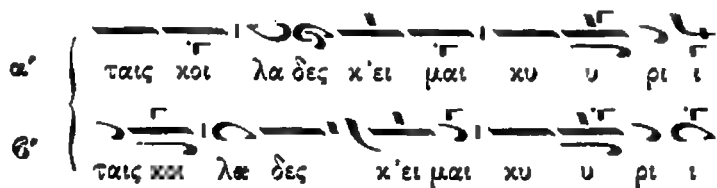 α' ταις κοι λα δες κ'ει μαι κυ υ ρι ι
ϐ' ταις κοι λα δες κ'ει μαι κυ υ ρι ι